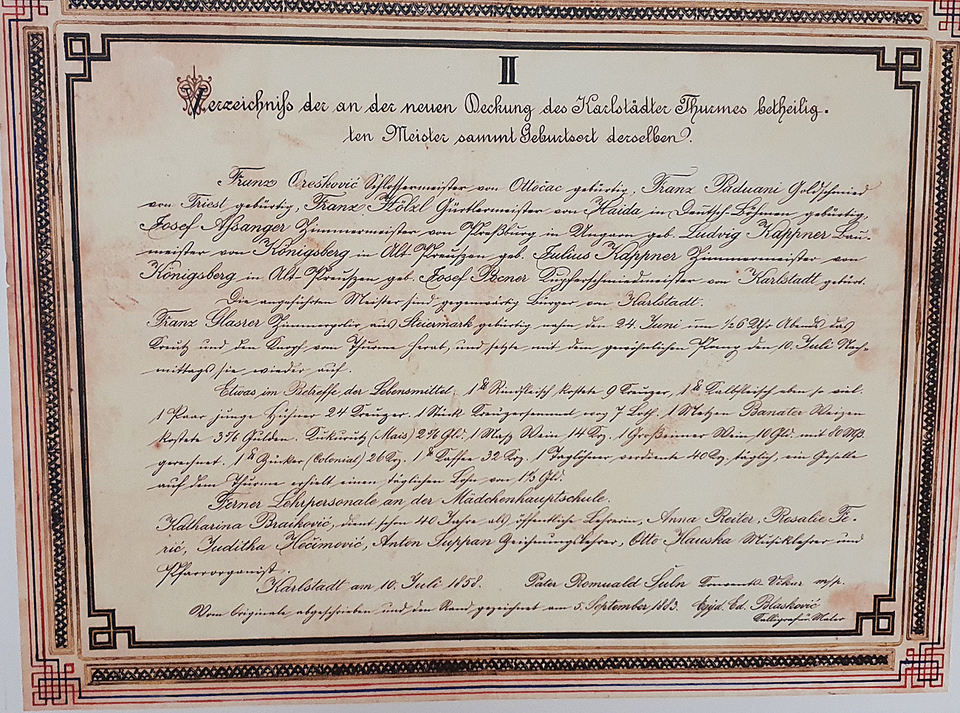 II
Verzeichniß der an der neuen Deckung des Karlstädter Thurmes betheilig-
ten Meister sammt Geburtsort derselben.
Franz Orešković Schlossermeister von Ottočac gebürtig, Franz Paduani Goldschmied
von Triest gebürtig, Franz Hölzl Gürtlermeister von Haida in Deutsch-Böhmen gebürtig,
Josef Assanger Zimmermeister von Preßburg in Ungarn geb. Ludvig Kappner Bau-
meister von Königsberg in Alt Preuszen geb. Julius Kappner Zimmermeister von
Königsberg in Alt Preutzen geb. Josef Kupferschmiedmeister von Karlstadt gebürt.
Die angeführten Meister sind gegenwärtig Bürger von Karlstadt.
Franz Glasrer Zimmerpolir aus Steiermark gebürtig nahm den 24. Juni um ½6 Uhr Abends das
Kreutz und den Knopf vom Thurme herab, und setzte mit dem den 10. Juli Nach-
mittags sie wieder auf.
Etwas im Betreffe der Lebensmittel, 1 ℔ Rindfleisch kostete 9 Kreuzer, 1 ℔ Kalbfleisch eben so viel.
1 Paar junge Hühner 24 Kreuzer. 1 Stück wog 7 Loth. 1 Metzen Banater Weizen
kostete 3¾ Gulden. Kukurutz (Mais) 2¾ Gld. 1 Maß Wein 14 Kr. 1 Wein 10 Gld. mit 80 Mß.
gerechnet. 1 ℔ Zucker (Colonial) 26 Kr. 1 ℔ Kaffee 32 Kr. 1 Taglöhner verdiente 40 Kr. täglich, ein Geselle
auf dem Thurme erhielt einen täglichen Lohn von Gld.
Ferner Lehrpersonale an der Mädchenhauptschule.
Katharina Braiković, dient schon 40 Jahre als öffentliche Lehrerin, Anna Reiter, Rosalie Fe-
rić, Juditha Hočimović, Anton Suppan Zeichnungslehrer, Otto Hauska Musiklehrer und
Pfarrorganist.
Karlstadt am 10. Juli 1858. Pater Romuald Suln
Vom Originale abgeschrieben und den Rand gezeichnet am 5. September 1883. Egid. Ed. Blasković
Calligraf u. Maler